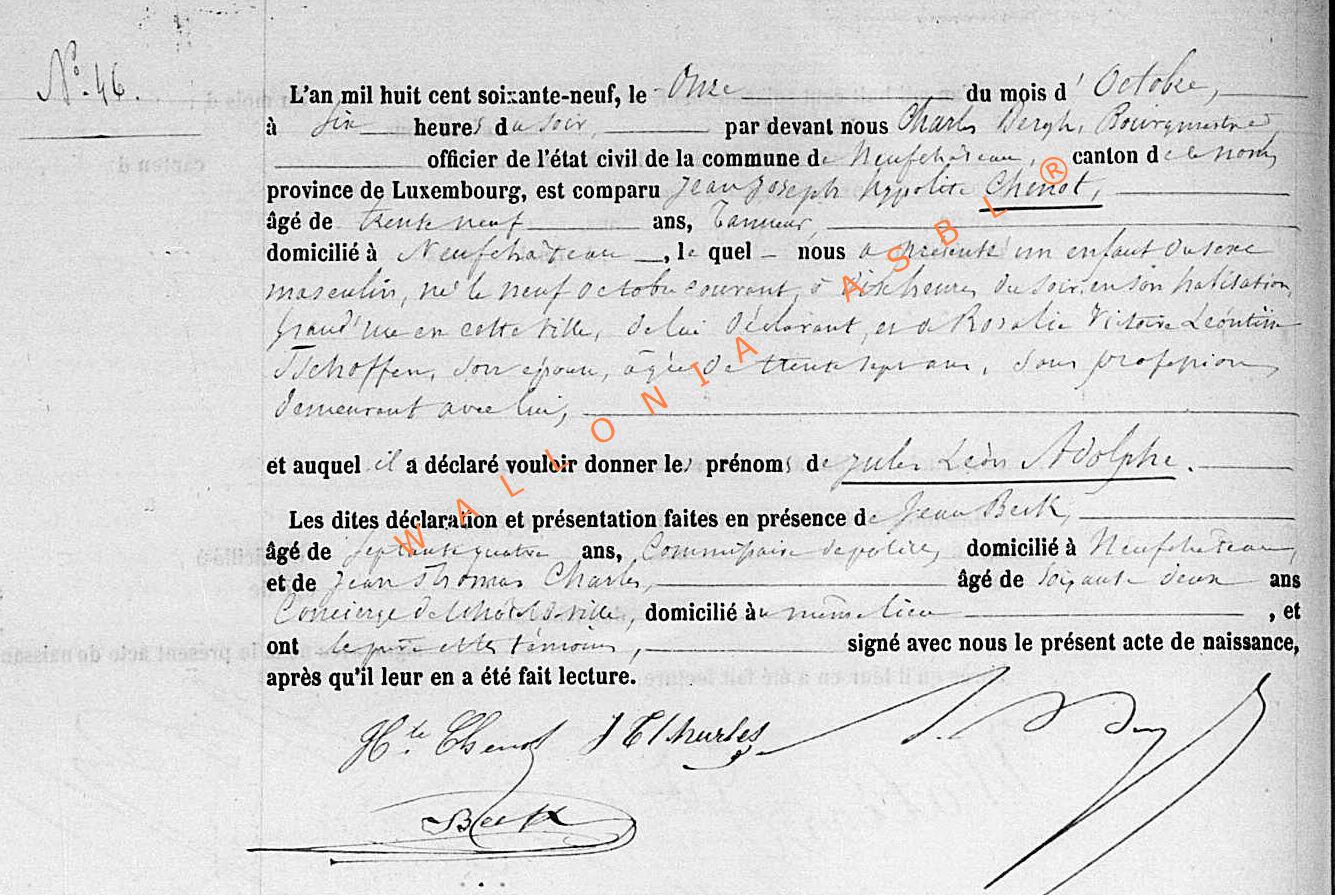 N°. 46.
L'an mil huit cent soixante-neuf, le Onze du mois d'Octobre,
à six heures du soir, par devant nous Charles Bergh, Bourgmestre,
officier de l'état civil de la commune de Neufchâteau, canton de ce nom,
province de Luxembourg, est comparu Jean Joseph hyppolite Chenot,
âgé de trente neuf ans, Tanneur,
domicilié à Neufchâteau, le quel nous a présenté un enfant du sexe
masculin, né le neuf octobre courant, à heures du soir, en son habitation,
Grand'rue en cette ville, de lui déclarant, et de Rosalie Victoire Léontine
Tschoffen, son épouse, âgée de trente sept ans, sans profession,
demeurant avec lui,
et auquel il a déclaré vouloir donner les prénoms de Jules Léon Adolphe.
Les dites déclaration et présentation faites en présence de Jean Beck,
âgé de septante quatre ans, Commissaire de police, domicilié à Neufchateau,
et de Jean Thomas Charles, âgé de soixante deux ans
Concierge de l'hôtel de ville, domicilié au même lieu, et
ont le père et les témoins, signé avec nous le présent acte de naissance,
après qu'il leur en a été fait lecture.
Hte Chenot J T Charles
Beck
WALLONIA ASBL ®